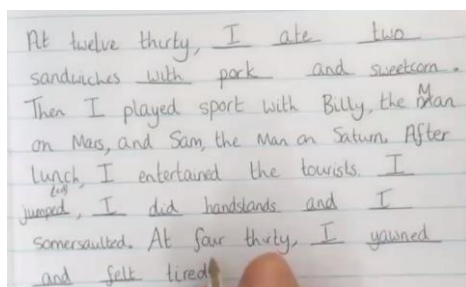 At twelve thirty, I ate two
sandwiches with pork and sweetcorn.
Then I played sport with Billy, the Man
on Mars, and Sam, the Man on Saturn. After
Lunch, I entertained the tourists. I
jumped, I did handstands and I
somersaulted. At four thirty, I yawned
and felt tired